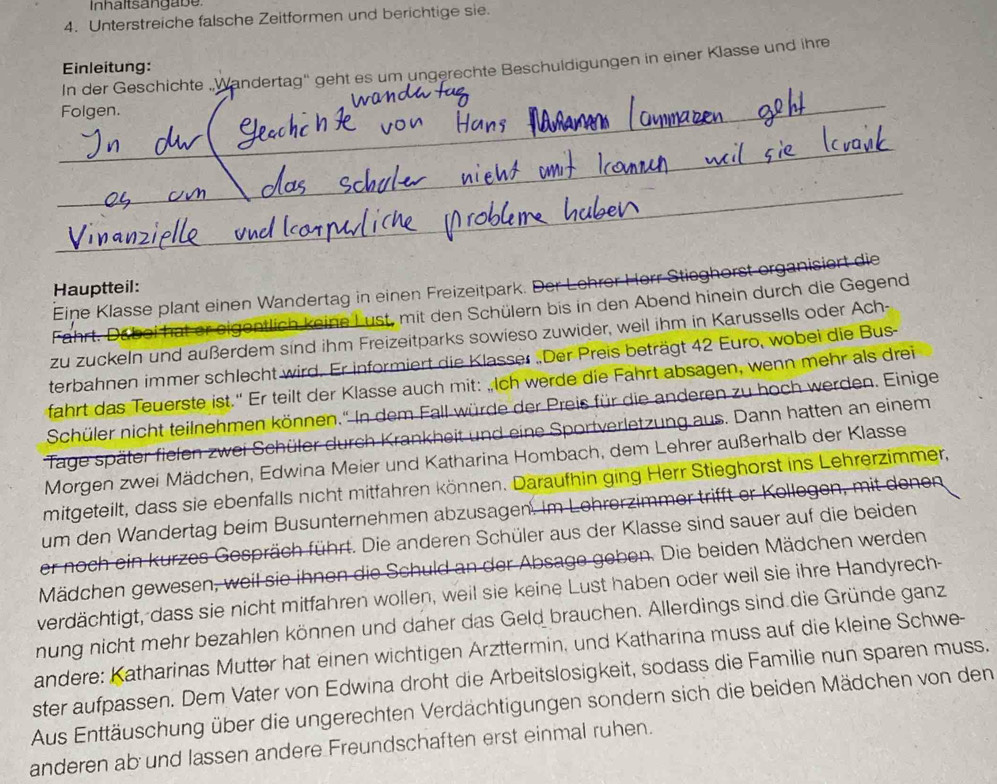 Inhaltsangabe.
4. Unterstreiche falsche Zeitformen und berichtige sie.
Einleitung:
In der Geschichte „Wandertag" geht es um ungerechte Beschuldigungen in einer Klasse und ihre
Folgen.
wandertag
In der Geschichte von Hans geht
es um das schüler nicht mit können weil sie krank
Vinanzielle und körperliche probleme haben
Hauptteil:
Eine Klasse plant einen Wandertag in einen Freizeitpark. Der Lehrer Herr Stieghorst organisiert die
Fahrt. Dabei hat er eigentlich keine Lust, mit den Schülern bis in den Abend hinein durch die Gegend
zu zuckeln und außerdem sind ihm Freizeitparks sowieso zuwider, weil ihm in Karussells oder Ach-
terbahnen immer schlecht wird. Er informiert die Klasse: „Der Preis beträgt 42 Euro, wobei die Bus-
fahrt das Teuerste ist." Er teilt der Klasse auch mit: „Ich werde die Fahrt absagen, wenn mehr als drei
Schüler nicht teilnehmen können." In dem Fall würde der Preis für die anderen zu hoch werden. Einige
Tage später fielen zwei Schüler durch Krankheit und eine Sportverletzung aus. Dann hatten an einem
Morgen zwei Mädchen, Edwina Meier und Katharina Hombach, dem Lehrer außerhalb der Klasse
mitgeteilt, dass sie ebenfalls nicht mitfahren können. Daraufhin ging Herr Stieghorst ins Lehrerzimmer,
um den Wandertag beim Busunternehmen abzusagen. Im Lehrerzimmer trifft er Kollegen, mit denen
er noch ein kurzes Gespräch führt. Die anderen Schüler aus der Klasse sind sauer auf die beiden
Mädchen gewesen, weil sie ihnen die Schuld an der Absage geben. Die beiden Mädchen werden
verdächtigt, dass sie nicht mitfahren wollen, weil sie keine Lust haben oder weil sie ihre Handyrech-
nung nicht mehr bezahlen können und daher das Geld brauchen. Allerdings sind die Gründe ganz
andere: Katharinas Mutter hat einen wichtigen Arzttermin, und Katharina muss auf die kleine Schwe-
ster aufpassen. Dem Vater von Edwina droht die Arbeitslosigkeit, sodass die Familie nun sparen muss.
Aus Enttäuschung über die ungerechten Verdächtigungen sondern sich die beiden Mädchen von den
anderen ab und lassen andere Freundschaften erst einmal ruhen.